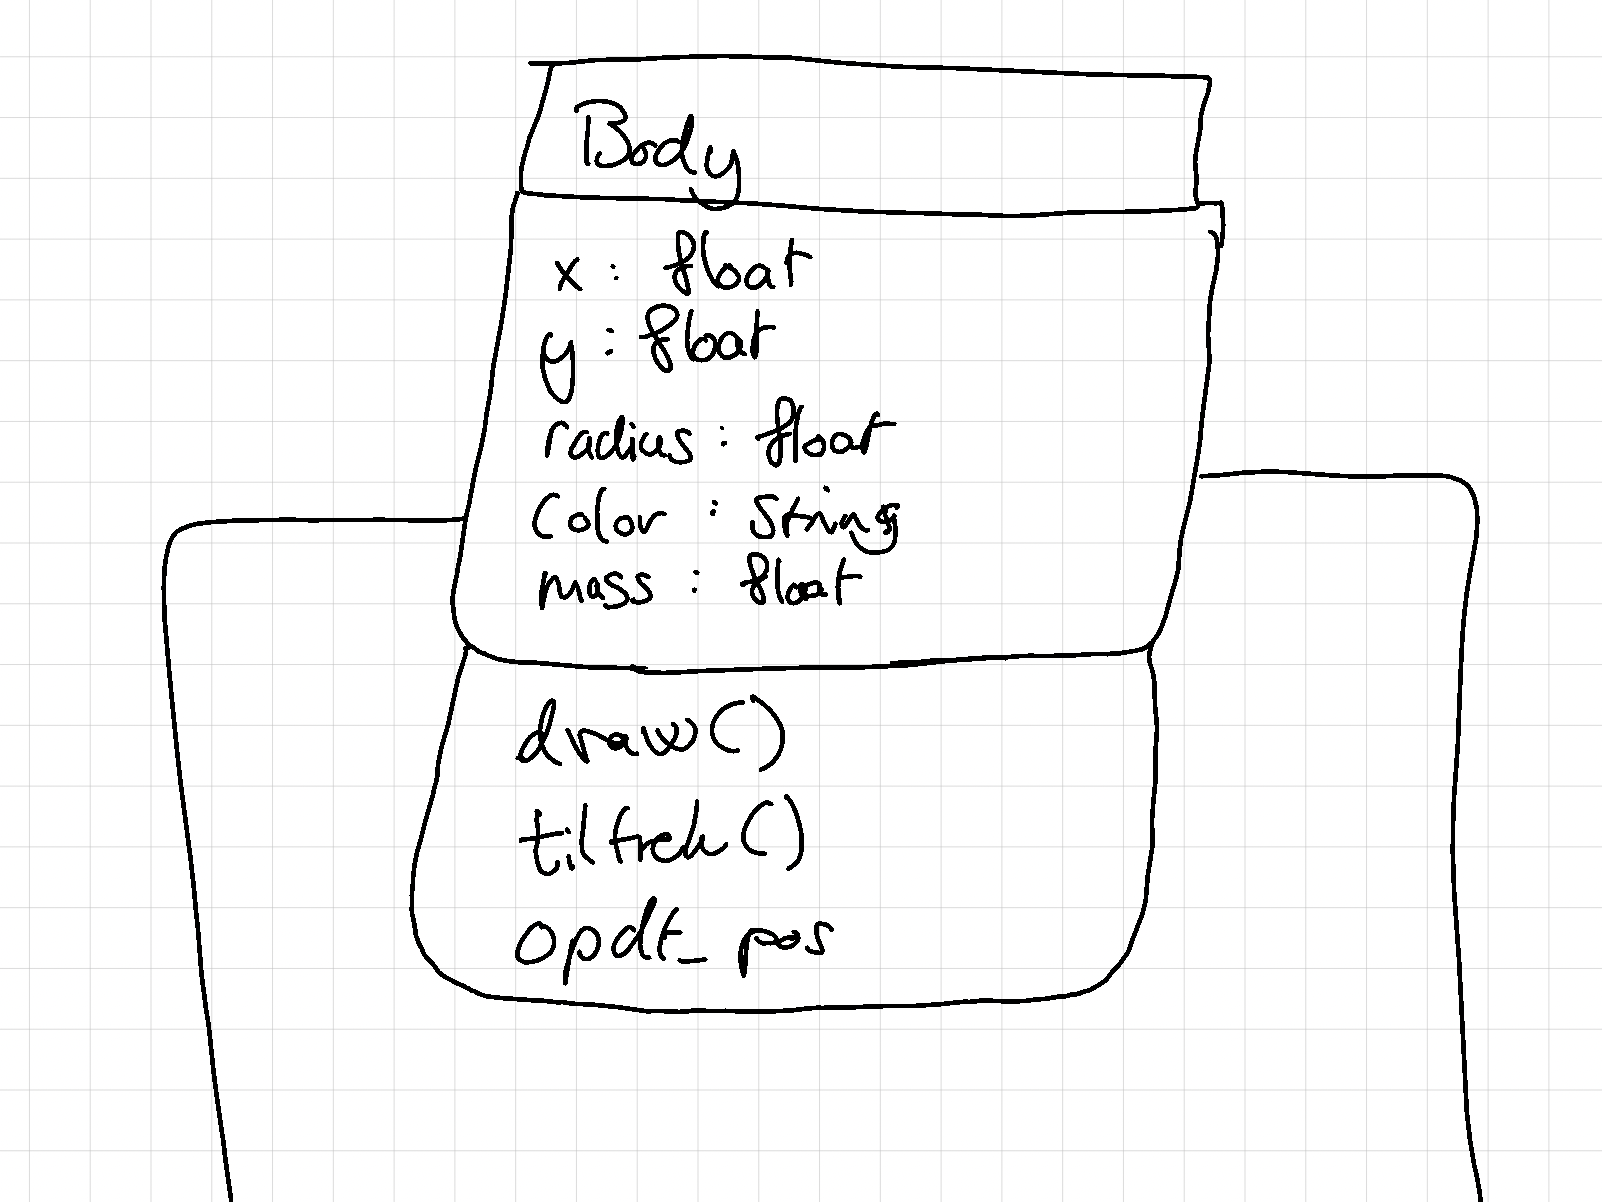 Body
x : float
y : float
radius : float
Color : String
mass : float
draw()
tiltrek()
opdt_pos